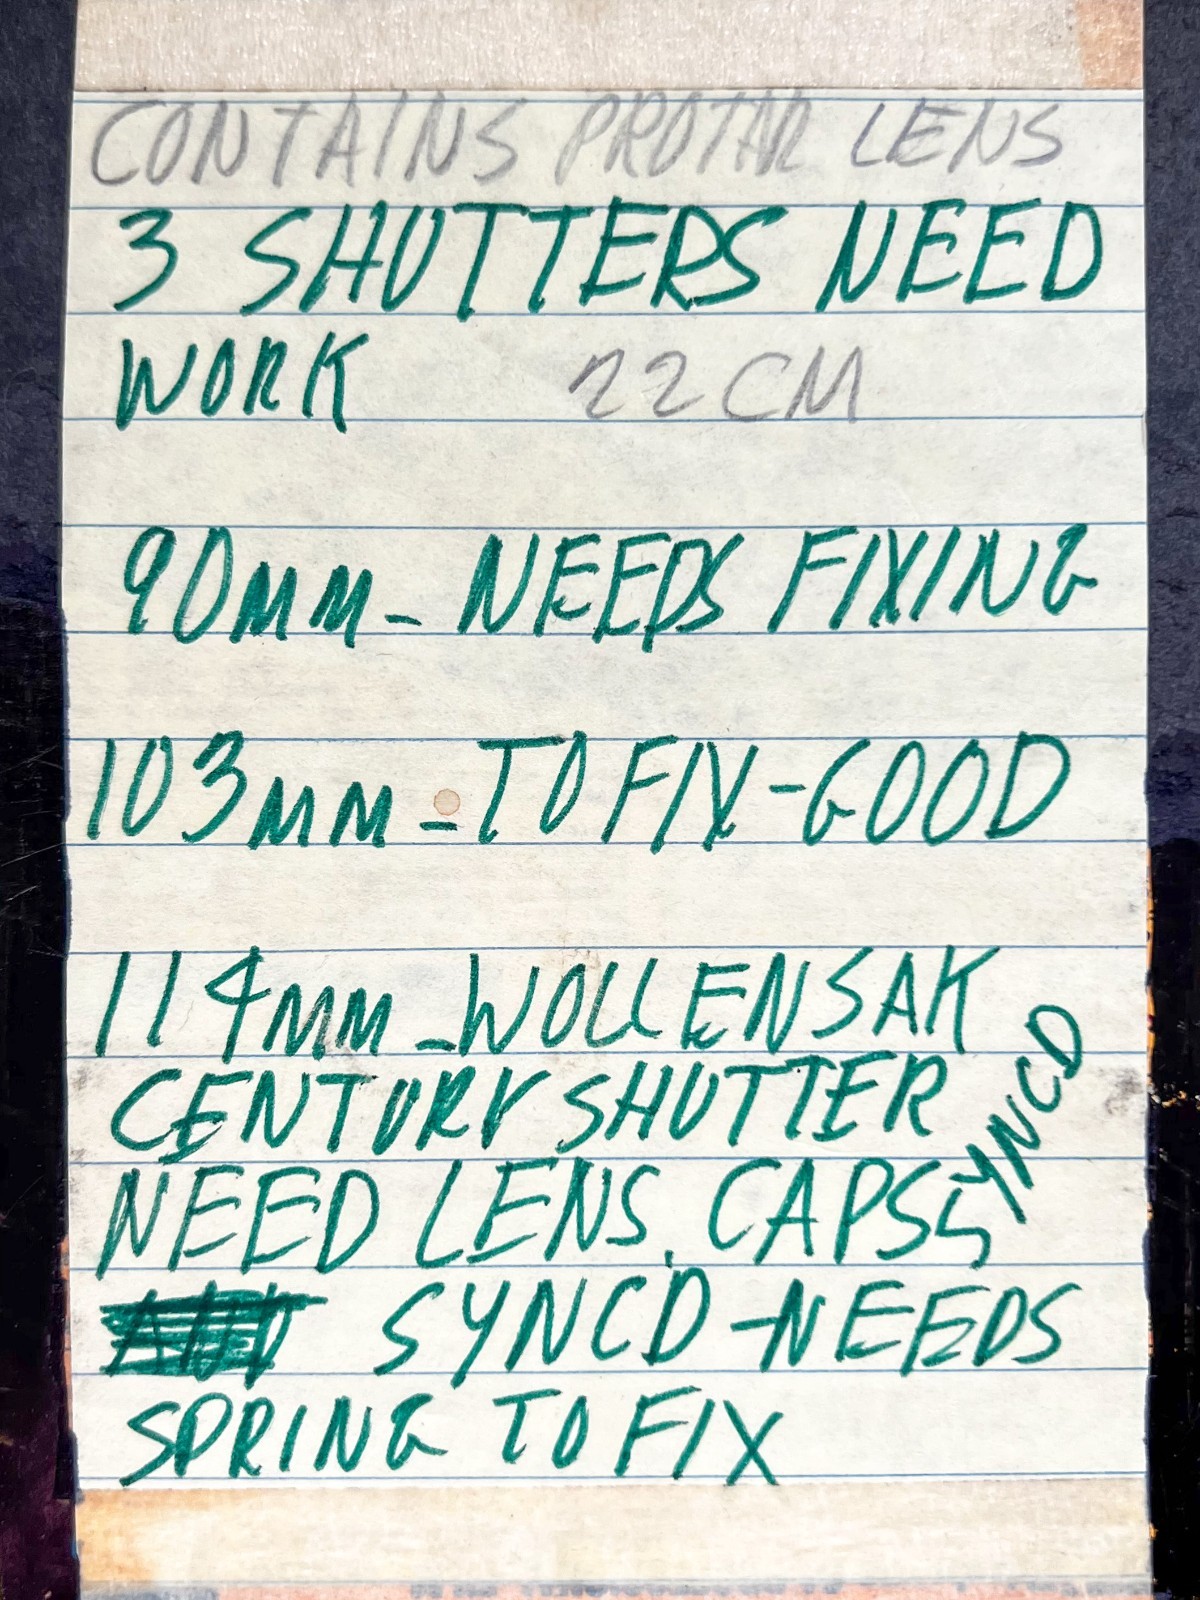 CONTAINS PROTAR LENS
3 SHUTTERS NEED
WORK 22 CM
90MM - NEEDS FIXING
103MM - TO FIX - GOOD
114MM - WOLLENSAK
CENTURY SHUTTER
NEED LENS. CAPS SYNCD
SYNCD - NEEDS
SPRING TO FIX